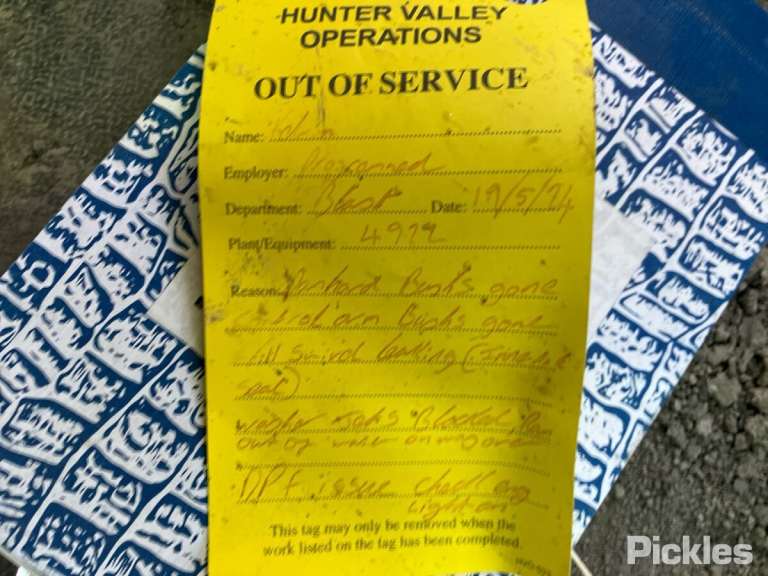 HUNTER VALLEY
OPERATIONS
OUT OF SERVICE
Name:
Employer: Programmed
Department: Blast Date: 19/5/24
Plant/Equipment: 4972
Reason: Panhard Bush's gone
Control arm Bush's gone
Fill Swivel leaking (
seal)
washer Jets Blocked
out of water on
DPF issue check eng
Light on
This tag may only be removed when the
work listed on the tag has been completed.
Pickles